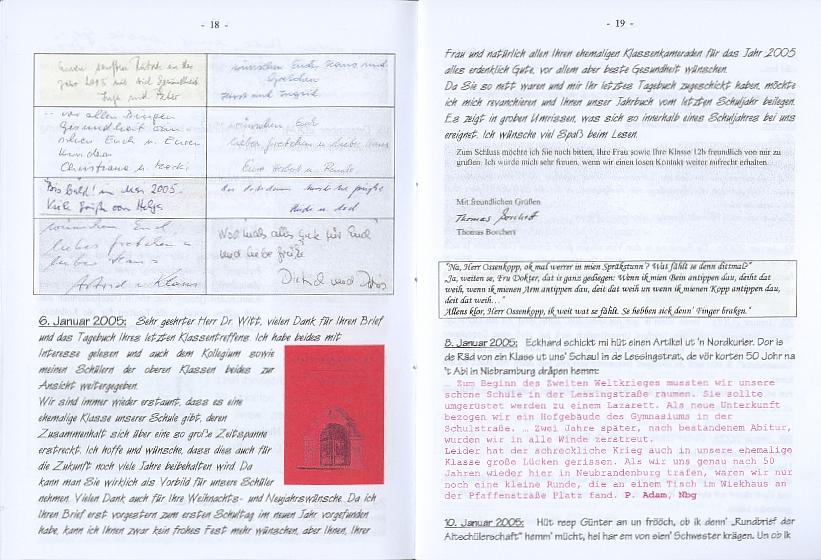 - 18 -
Jahr 2005 mit viel Gesundheit
wünschen Euch, Hans und
Gretchen
Horst und Ingrid
... vor allen Dingen
Gesundheit von
wünschen Euch
liebes Gretchen u. lieber Hans
"Bis bald!" im Mai 2005.
Viele Grüße von Helga
wünschen Euch,
liebes Gretchen u.
lieber Hans
Astrid u. Klaus
Nochmals alles Gute für Euch
und liebe Grüße
6. Januar 2005: Sehr geehrter Herr Dr. Witt, vielen Dank für Ihren Brief
und das Tagebuch Ihres letzten Klassentreffens. Ich habe beides mit
Interesse gelesen und auch dem Kollegium sowie
meinen Schülern der oberen Klassen beides zur
Ansicht weitergegeben.
Wir sind immer wieder erstaunt, dass es eine
ehemalige Klasse unserer Schule gibt, deren
Zusammenhalt sich über eine so große Zeitspanne
erstreckt. Ich hoffe und wünsche, dass dies auch für
die Zukunft noch viele Jahre beibehalten wird. Da
kann man Sie wirklich als Vorbild für unsere Schüler
nehmen. Vielen Dank auch für Ihre Weihnachts- und Neujahrswünsche. Da ich
Ihren Brief erst vorgestern zum ersten Schultag im neuen Jahr vorgefunden
habe, kann ich Ihnen zwar kein frohes Fest mehr wünschen, aber Ihnen, Ihrer
- 19 -
Frau und natürlich allen Ihren ehemaligen Klassenkameraden für das Jahr 2005
alles erdenklich Gute, vor allem aber beste Gesundheit wünschen.
Da Sie so nett waren und mir Ihr letztes Tagebuch zugeschickt haben, möchte
ich mich revanchieren und Ihnen unser Jahrbuch vom letzten Schuljahr beilegen.
Es zeigt in groben Umrissen, was sich so innerhalb eines Schuljahres bei uns
ereignet. Ich wünsche viel Spaß beim Lesen.
Zum Schluss möchte ich Sie noch bitten, Ihre Frau sowie Ihre Klasse 12b freundlich von mir zu
grüßen. Ich würde mich sehr freuen, wenn wir einen losen Kontakt weiter aufrecht erhalten.
Mit freundlichen Grüßen
Thomas Borchert
Thomas Borchert
"Na, Herr Ossenkopp, ok mal werrer in mien Spräkstunn'? Wat fählt se denn dittmal?"
"Ja, weiten se, Fru Dokter, dat is ganz gediegen: Wenn ik mien Bein antippen dau, deiht dat
weih, wenn ik mienen Arm antippen dau, deit dat weih un wenn ik mienen Kopp antippen dau,
deit dat weih..."
Allens klor, Herr Ossenkopp, ik weit wat se fählt. Se hebben sick denn' Finger braken."
8. Januar 2005: Eckhard schickt mi hüt einen Artikel ut 'n Nordkurier. Dor is
de Räd von ein Klass ut uns' Schaul in de Lessingstrat, de vör korten 50 Johr na
't Abi in Niebramburg dräpen hemm:
… Zum Beginn des Zweiten Weltkrieges mussten wir unsere
schöne Schule in der Lessingstraße räumen. Sie sollte
umgerüstet werden zu einem Lazarett. Als neue Unterkunft
bezogen wir ein Hofgebäude des Gymnasiums in der
Schulstraße. … Zwei Jahre später, nach bestandenem Abitur,
wurden wir in alle Winde zerstreut.
Leider hat der schreckliche Krieg auch in unsere ehemalige
Klasse große Lücken gerissen. Als wir uns genau nach 50
Jahren wieder hier in Neubrandenburg trafen, waren wir nur
noch eine kleine Runde, die an einem Tisch im Wiekhaus an
der Pfaffenstraße Platz fand. P. Adam, Nbg
10. Januar 2005: Hüt reep Günter an un frööch, ob ik denn' „Rundbrief der
Altschülerschaft" hemm' mücht, hei har em von sien' Schwester krägen. Un ob ik